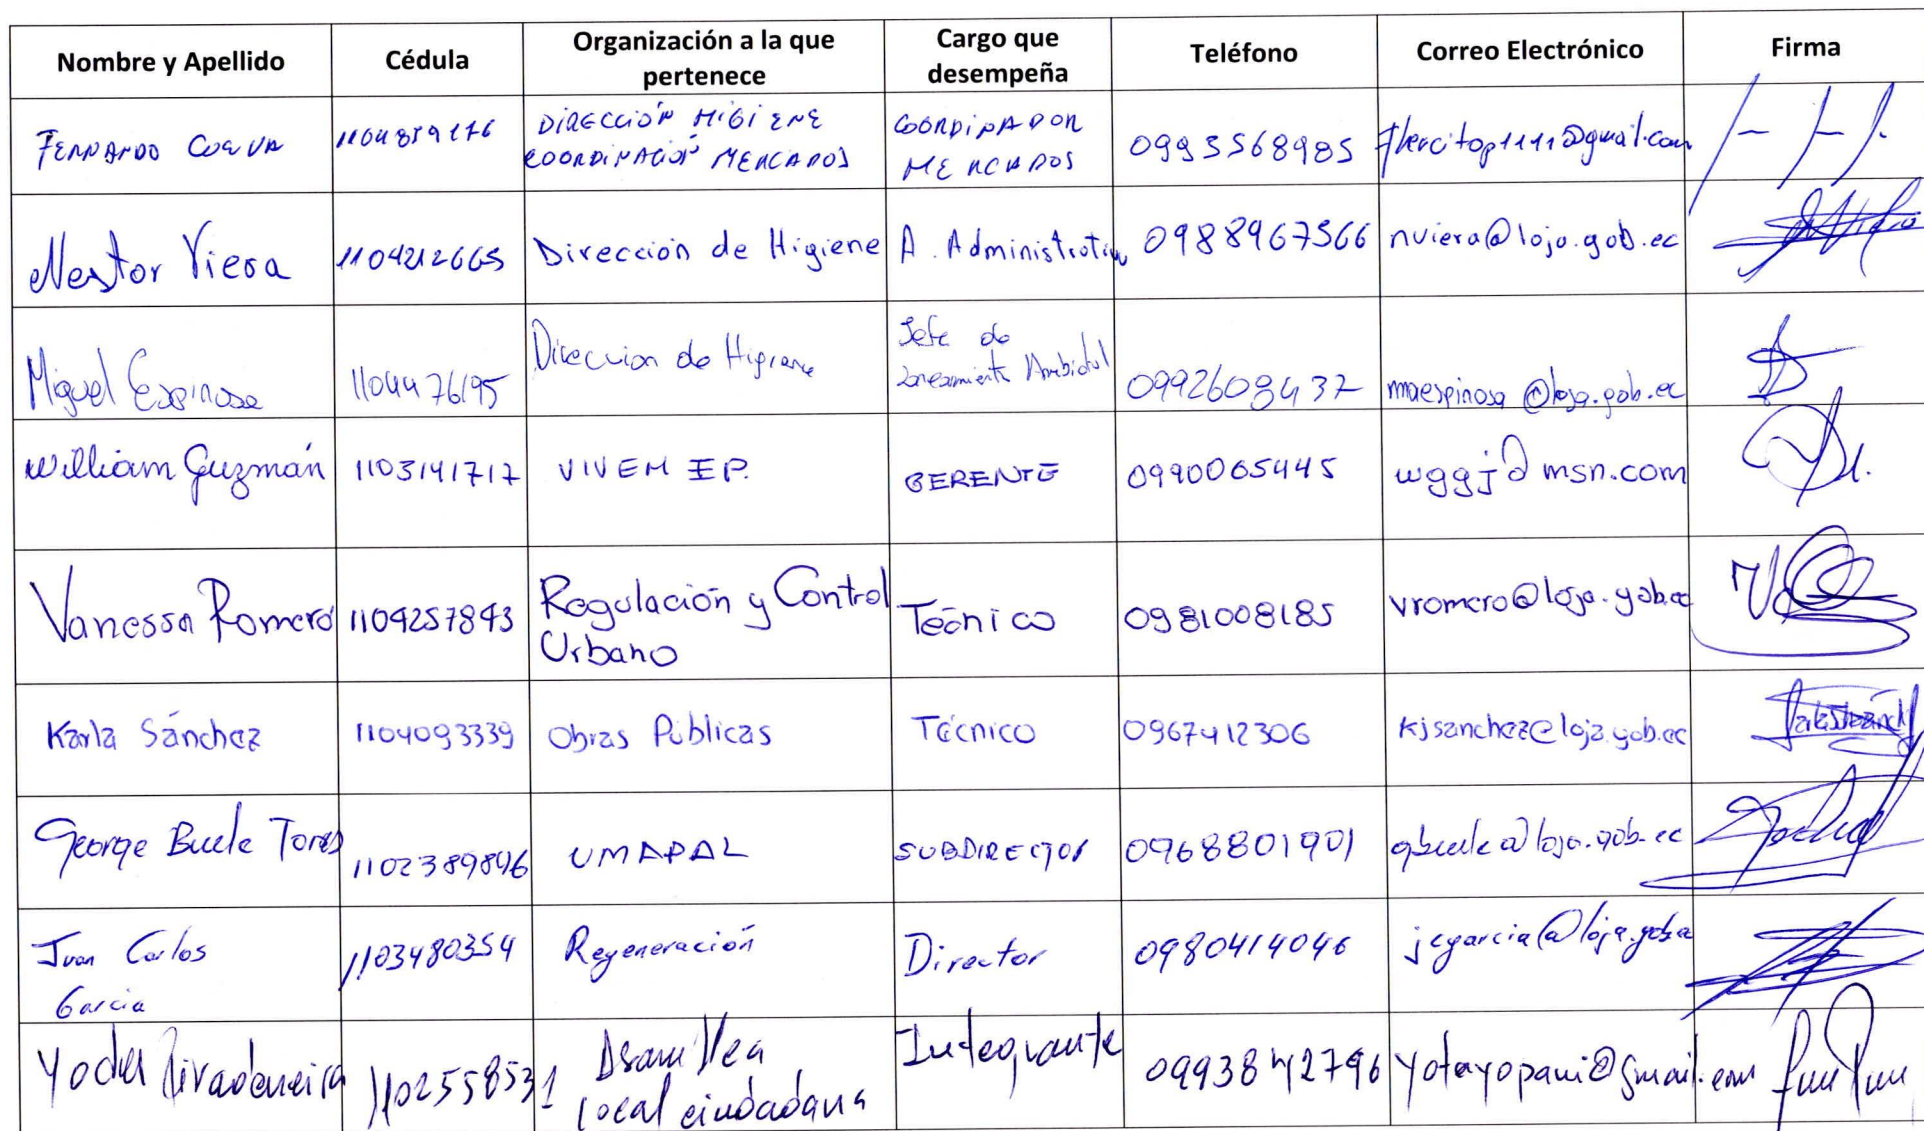 Nombre y Apellido Cédula Organización a la que pertenece Cargo que desempeña Teléfono Correo Electrónico Firma
FERNANDO DIRECCIÓN HIGIENE COORDINACIÓN MERCADOS COORDINADOR MERCADOS 0993568985
Nestor Viera 1104212665 Dirección de Higiene A. Administrativo 0988967366 nviera@loja.gob.ec
Miguel Espinosa 1104476195 Dirección de Higiene Jefe de Ambiental 0992609437 mmaespinosa@loja.gob.ec
william Guzmán 1103141717 VIVEM EP. GERENTE 0990065445 wggj@msn.com
Vanessa Romero 1104257843 Regulación y Control Urbano Técnico 0981008185 vromero@loja.gob.ec
Karla Sánchez 1104093339 Obras Públicas Técnico 0967412306 kjsanchez@loja.gob.ec
George Torres 1102389846 UMAPAL SUBDIRECTOR 0968801901
Juan Carlos García 1103480354 Regeneración Director 0980414046 jcgarcia@loja.gob.ec
Rivadeneira 1102558531 Asamblea local ciudadana Integrante 0993842796